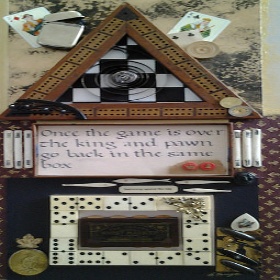 Once the game is over
the king and pawn
go back in the same
box